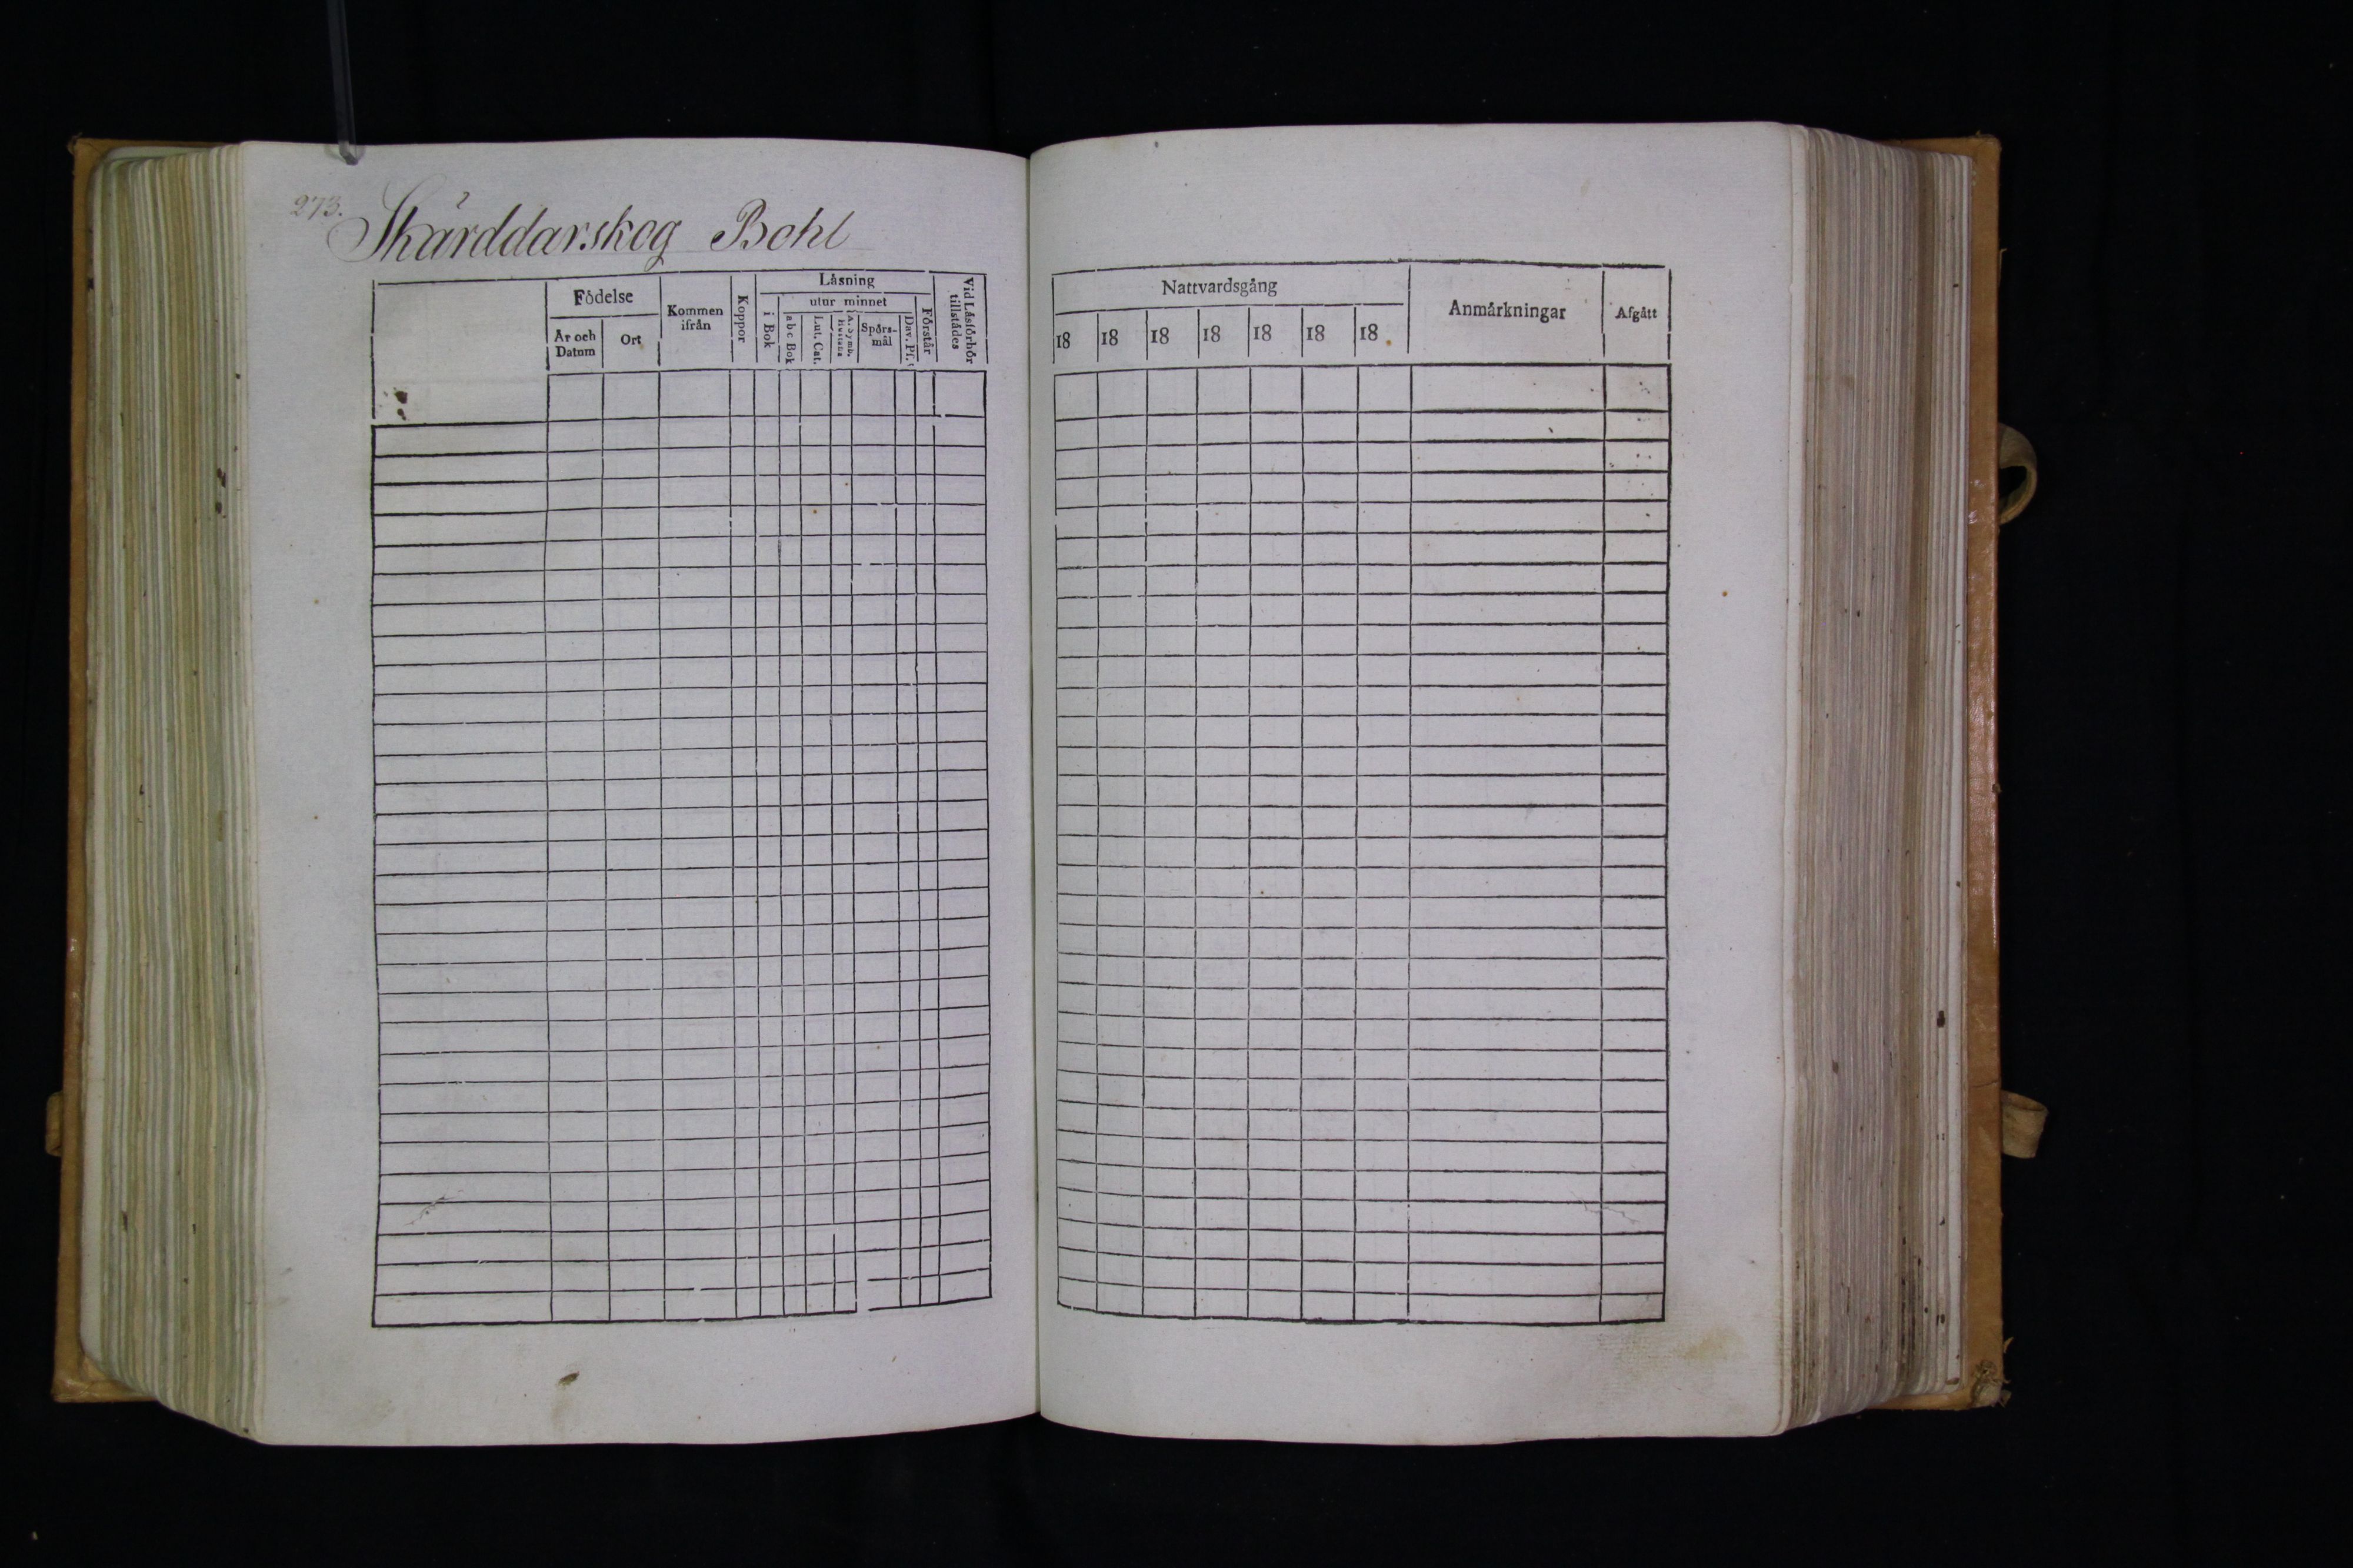 273.
Skärddarskog Bohl
Födelse
År och Datum
Ort
Kommen ifrån
Koppor
Läsning
utur minnet
i Bok
abc Bok
Lut. Cat.
A. Symb.
Hustafla
Spörs-
mål
Dav. Ps.
Förstår
Vid Läsförhör
tillstädes
Nattvardsgång
18 18 18 18 18 18 18
Anmärkningar
Afgått